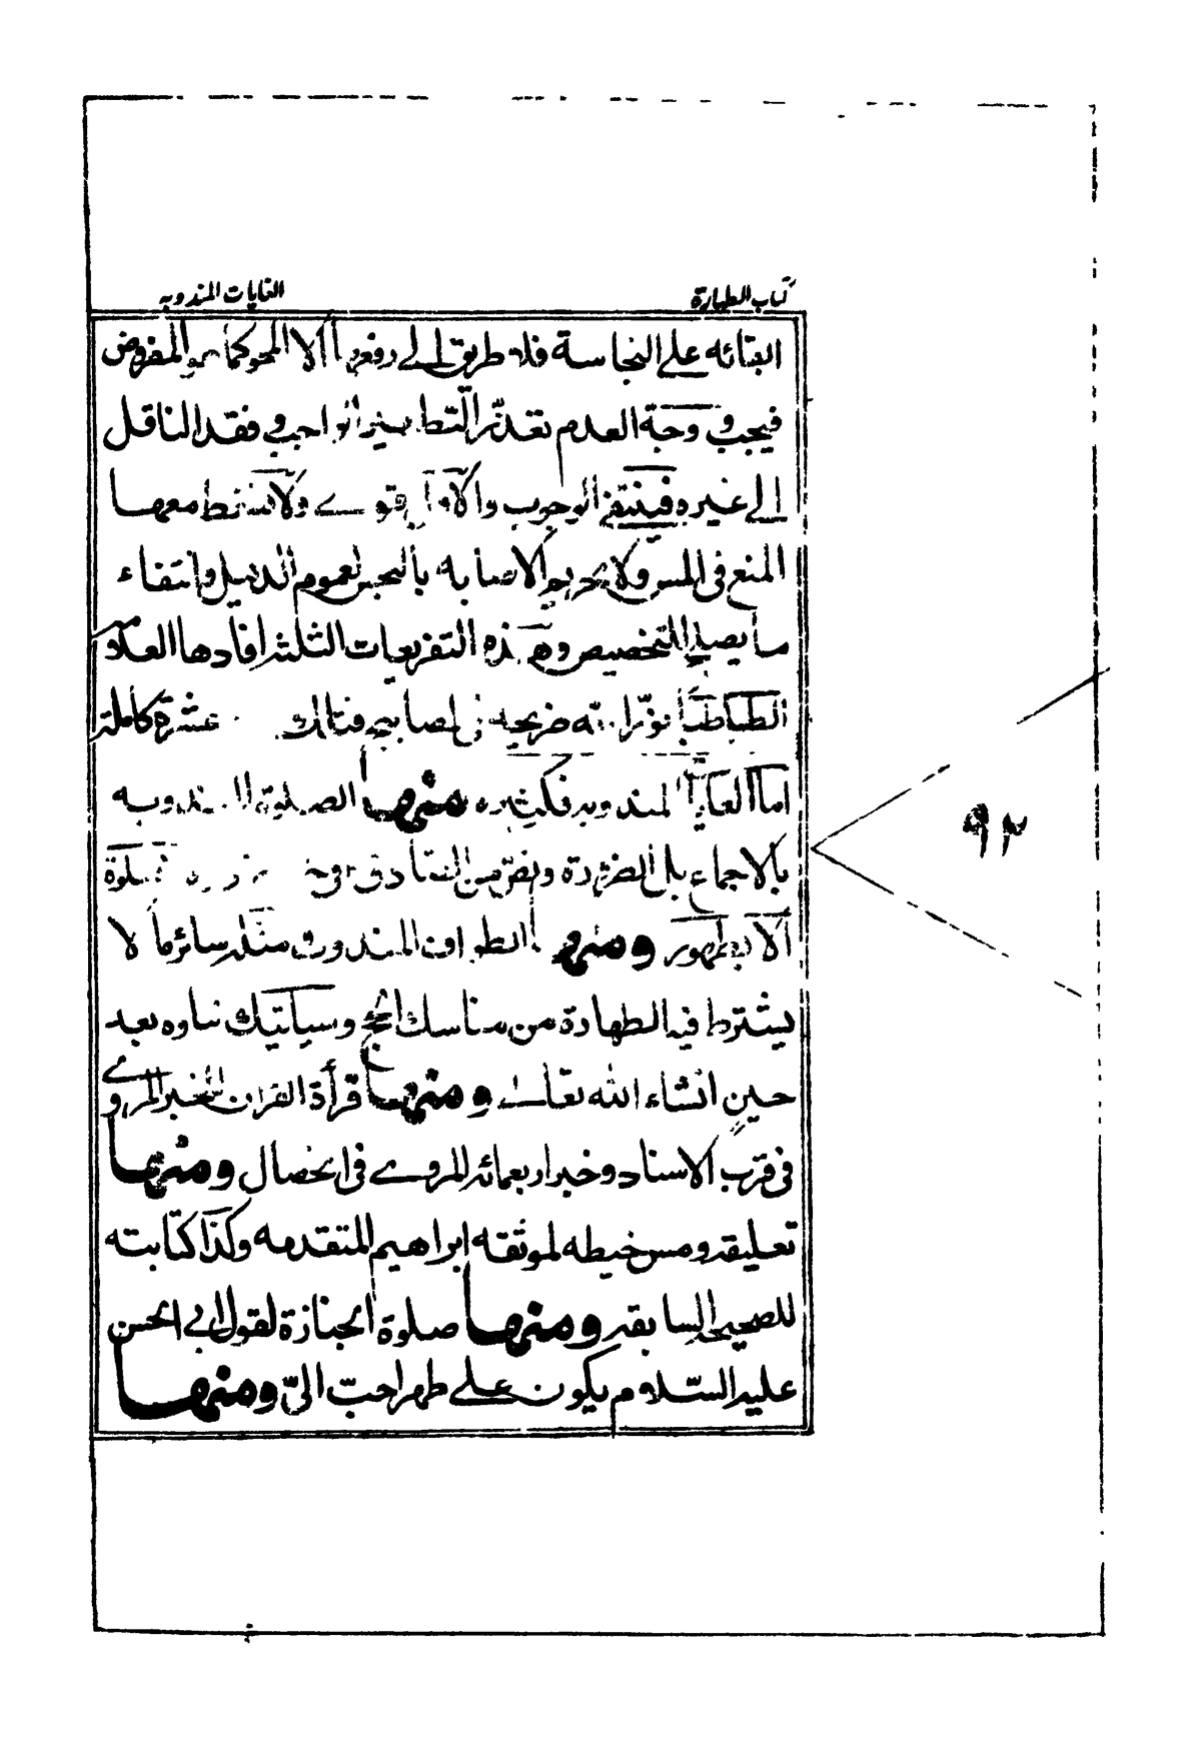 كتاب الطهارة
الغايات المندوبه
على النجاسة فلا طريق الى رفعها الا المحو كما هو المفروض
فيجب و وجة العدم تعذّر التطهير الواجب و فقد الناقل
الى غيره فينتفى الوجوب والاول قوى ولا معها
المنع فى المس ولا الاصابه بالنجس لعموم الدليل وانتفاء
ما يصلح للتخصيص وهذه التفريعات الثلثه افادها العلامه
الطباطبائى نوّر الله ضريحه فى عشرة كاملة
اما الغايات المندوبه فكثيره منها الصلوة المندوبه
بالاجماع بل الضرورة صلوة
الا بطهور ومنها الطواف المندوب و مثله سائر ما لا
يشترط فيه الطهارة من مناسك الحج و سيأتيك بعد
حين انشاء الله تعالى ومنها قرأة القران للخبر المروى
فى قرب الاسناد وخبر اربعمائة المروى فى الخصال ومنها
تعليقه ومس خيطه لموثقه ابراهيم المتقدمه وكذا كتابته
للصحيح السابقه ومنها صلوة الجنازة لقول ابى الحسن
عليه السّلام يكون على طهر احبّ الىّ ومنها
٩٢